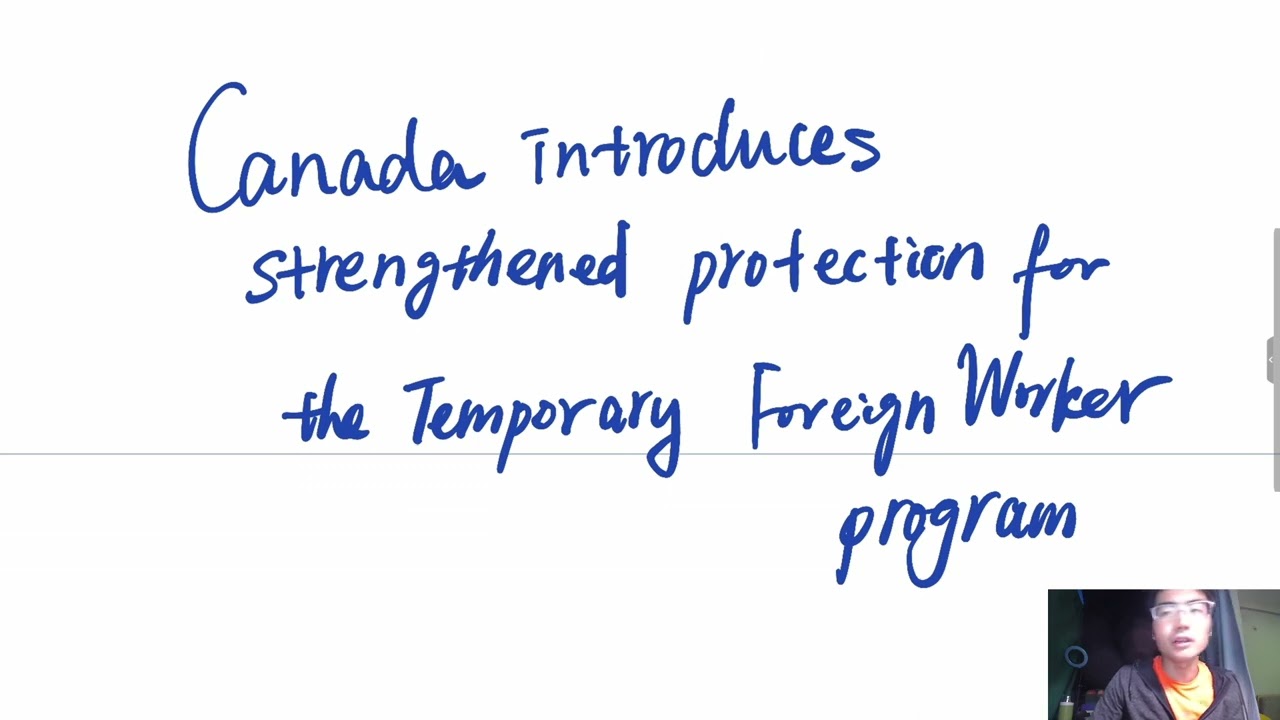 Canada introduces
strengthened protection for
the Temporary Foreign Worker
program